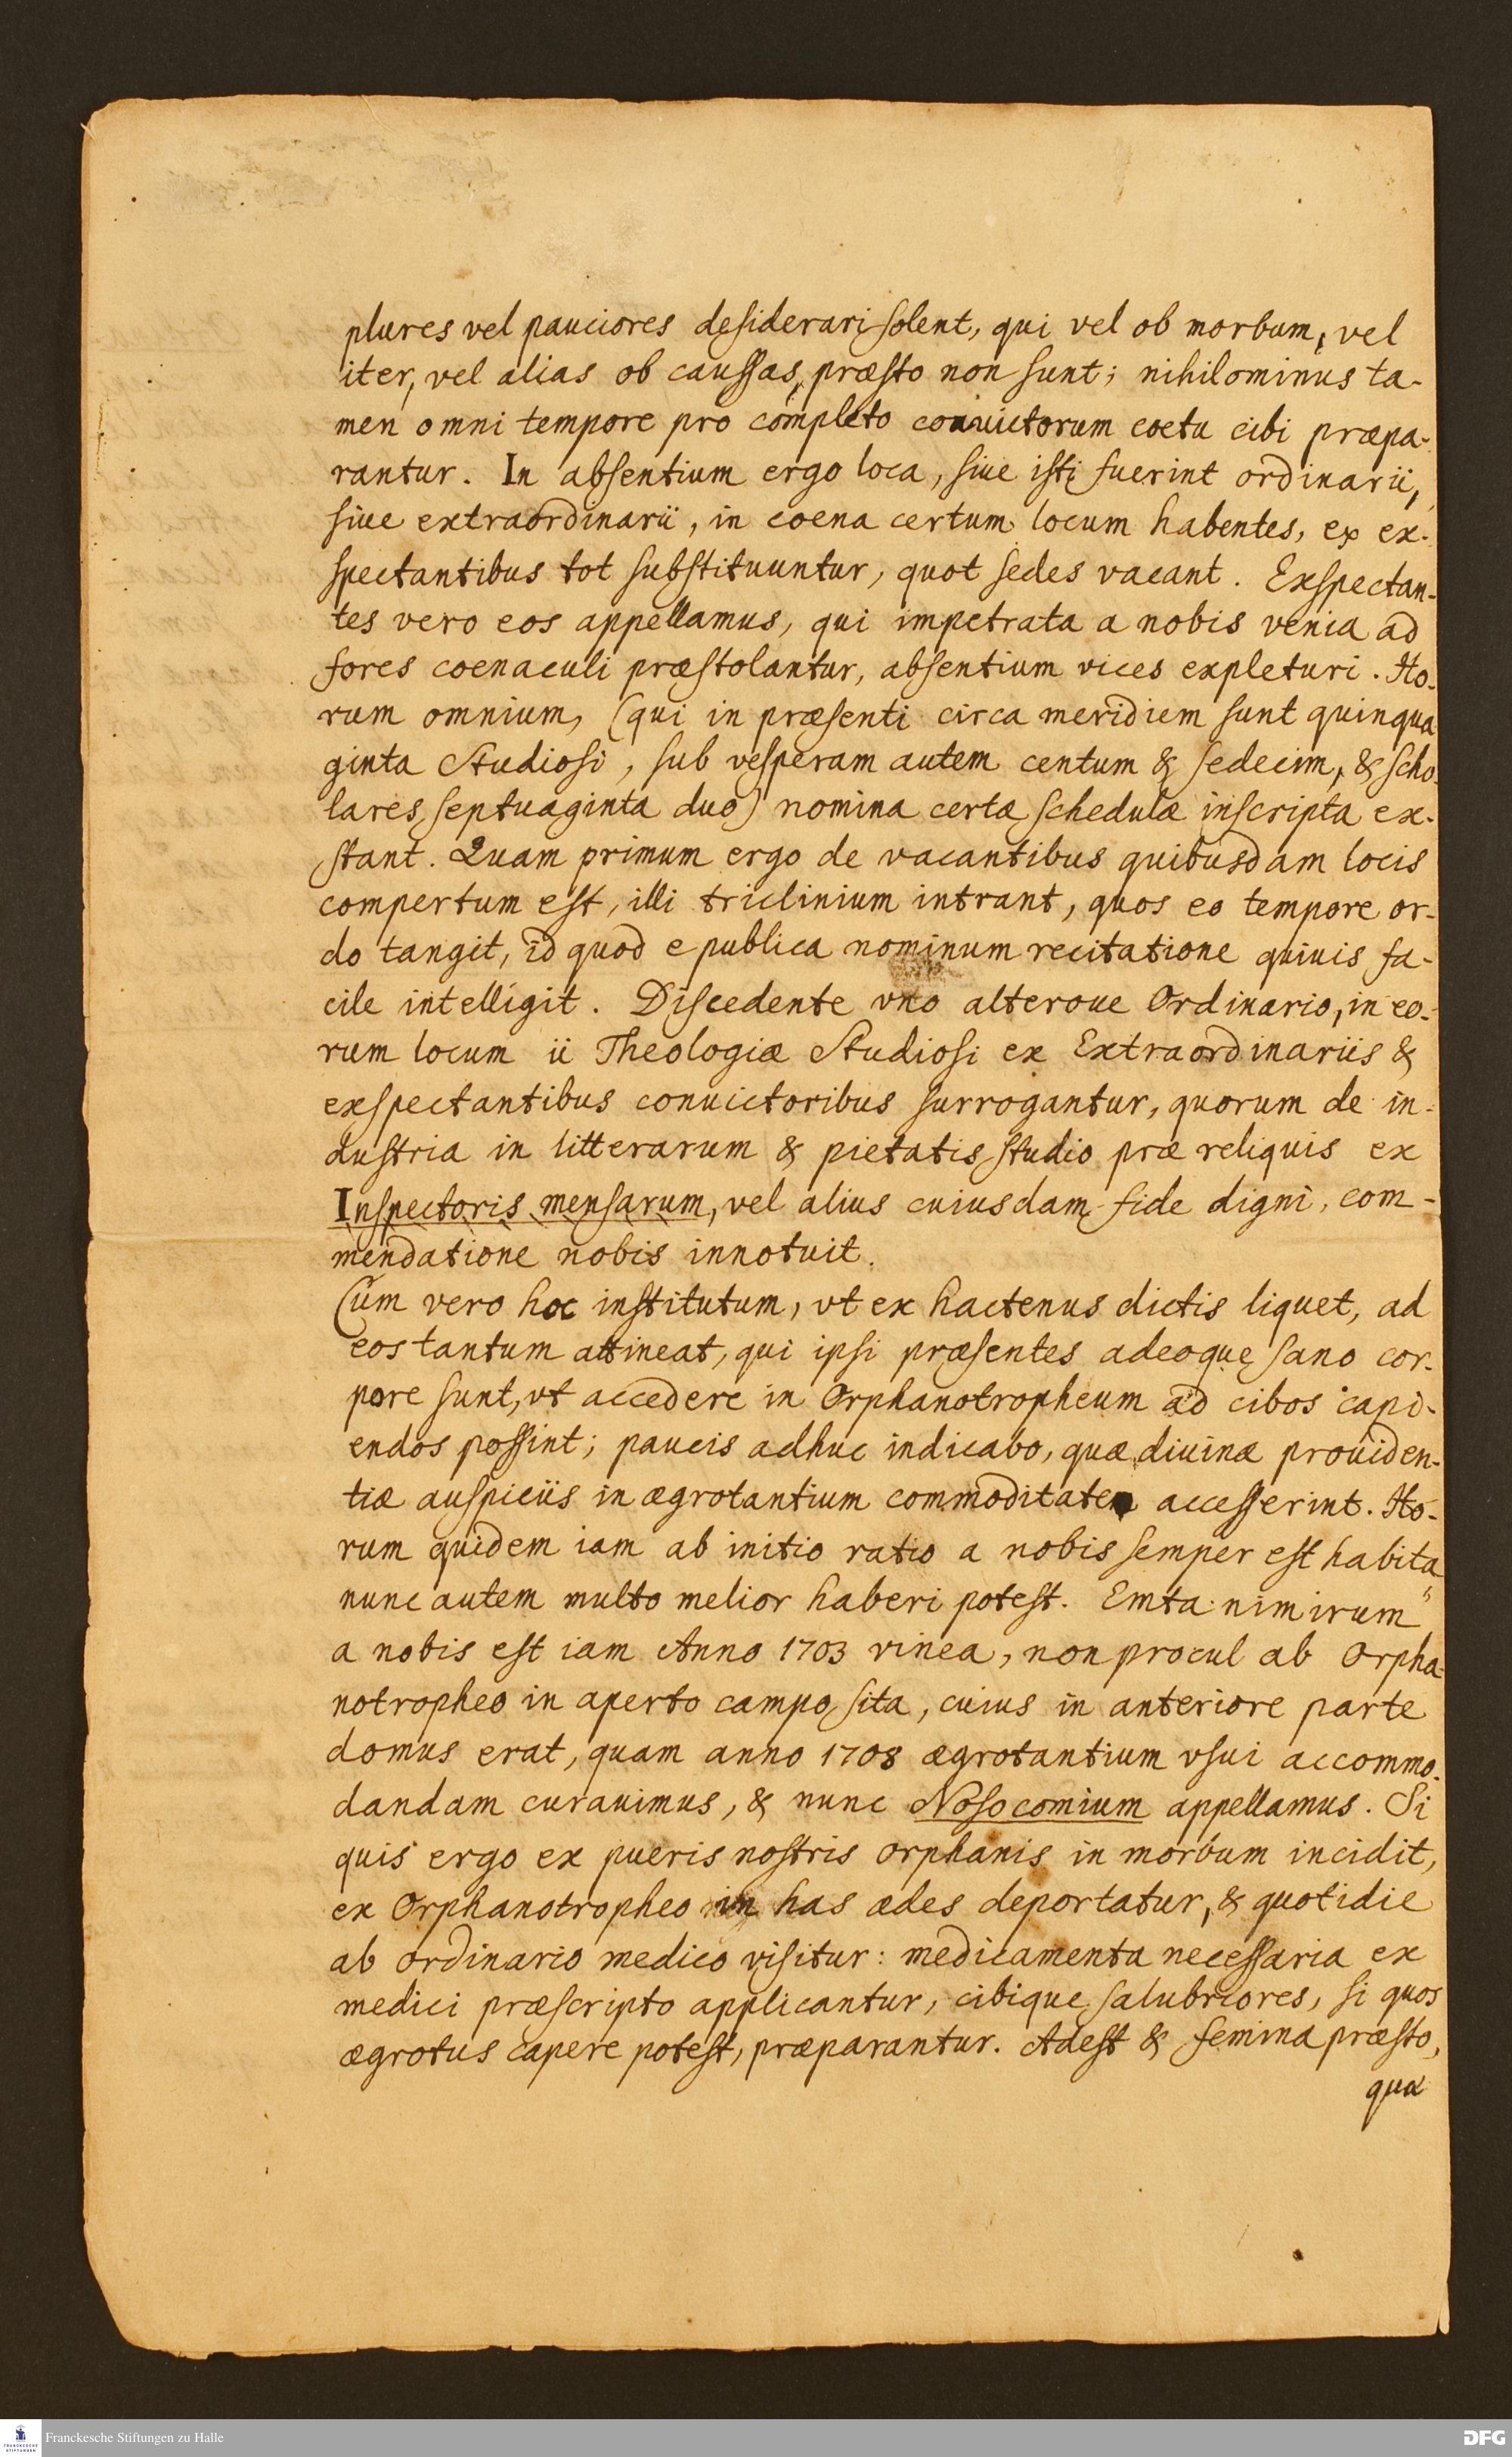 plures vel pauciores desiderari solent, qui vel ob morbum, vel
iter, vel alias ob caussas, præsto non sunt; nihilominus ta-
men omni tempore pro completo conuictorum coetu cibi præpa-
rantur. In absentium ergo loca, siue isti fuerint ordinarii,
siue extraordinarii, in coena certum locum habentes, ex ex-
spectantibus tot substituuntur, quot sedes vacant. Exspectan-
tes vero eos appellamus, qui impetrata a nobis venia ad
fores coenaculi præstolantur, absentium vices expleturi. Ho-
rum omnium, (qui in præsenti circa meridiem sunt quinqua
ginta Studiosi, sub vesperam autem centum & sedecim, & scho-
lares septuaginta duo) nomina certæ schedulæ inscripta ex-
stant. Quam primum ergo de vacantibus quibusdam locis
compertum est, illi triclinium intrant, quos eo tempore or-
do tangit, id quod e publica nominum recitatione quiuis fa-
cile intelligit. Discedente vno alteroue Ordinario, in eo-
rum locum ii Theologiæ Studiosi ex Extraordinariis &
exspectantibus conuictoribus surrogantur, quorum de in-
dustria in litterarum & pietatis studio præ reliquis ex
Inspectoris mensarum, vel alius cuiusdam fide digni, com-
mendatione nobis innotuit.
Cum vero hoc institutum, vt ex hactenus dictis liquet, ad
eos tantum attineat, qui ipsi præsentes adeoque sano cor-
pore sunt, vt accedere in Orphanotropheum ad cibos capi-
endos possint; paucis adhuc indicabo, quæ diuinæ prouiden-
tiæ auspiciis in ægrotantium commoditatem accesserint. Ho-
rum quidem iam ab initio ratio a nobis semper est habita
nunc autem multo melior haberi potest. Emta nimirum
a nobis est iam Anno 1703 vinea, non procul ab Orpha-
notropheo in aperto campo sita, cuius in anteriore parte
domus erat, quam anno 1708 ægrotantium vsui accommo-
dandam curauimus, & nunc Nosocomium appellamus. Si
quis ergo ex pueris nostris orphanis in morbum incidit,
ex Orphanotropheo in has ædes deportatur, & quotidie
ab ordinario medico visitur: medicamenta necessaria ex
medici præscripto applicantur, cibique salubriores, si quos
ægrotus capere potest, præparantur. Adest & femina præsto,
quæ
Franckesche Stiftungen zu Halle
DFG